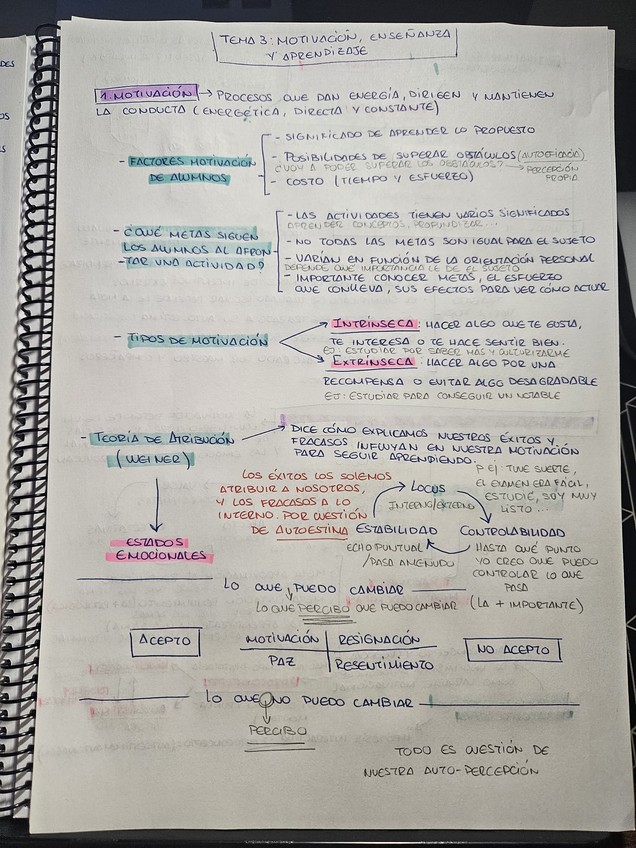 TEMA 3: MOTIVACIÓN, ENSEÑANZA
Y APRENDIZAJE
1. MOTIVACIÓN → PROCESOS QUE DAN ENERGÍA, DIRIGEN Y MANTIENEN
LA CONDUCTA (ENERGÉTICA, DIRECTA Y CONSTANTE)
- FACTORES MOTIVACIÓN
DE ALUMNOS
- SIGNIFICADO DE APRENDER LO PROPUESTO
- POSIBILIDADES DE SUPERAR OBSTÁCULOS (AUTOEFICACIA)
¿VOY A PODER SUPERAR LOS OBSTÁCULOS? → PERCEPCIÓN
PROPIA
- COSTO (TIEMPO Y ESFUERZO)
- ¿QUÉ METAS SIGUEN
LOS ALUMNOS AL AFRON
-TAR UNA ACTIVIDAD?
- LAS ACTIVIDADES TIENEN VARIOS SIGNIFICADOS
APRENDER CONCEPTOS, PROFUNDIZAR...
- NO TODAS LAS METAS SON IGUAL PARA EL SUJETO
- VARÍAN EN FUNCIÓN DE LA ORIENTACIÓN PERSONAL
DEPENDE QUE IMPORTANCIA LE DE EL SUJETO
- IMPORTANTE CONOCER METAS, EL ESFUERZO
QUE CONLLEVA, SUS EFECTOS PARA VER CÓMO ACTUAR
- TIPOS DE MOTIVACIÓN
INTRÍNSECA: HACER ALGO QUE TE GUSTA,
TE INTERESA O TE HACE SENTIR BIEN.
EJ: ESTUDIAR POR SABER MÁS Y CULTURIZARME
EXTRÍNSECA: HACER ALGO POR UNA
RECOMPENSA O EVITAR ALGO DESAGRADABLE
EJ: ESTUDIAR PARA CONSEGUIR UN NOTABLE
- TEORÍA DE ATRIBUCIÓN
(WEINER)
DICE CÓMO EXPLICAMOS NUESTROS ÉXITOS Y
FRACASOS INFLUYAN EN NUESTRA MOTIVACIÓN
PARA SEGUIR APRENDIENDO.
LOS ÉXITOS LOS SOLEMOS
ATRIBUIR A NOSOTROS,
Y LOS FRACASOS A LO
INTERNO. POR CUESTIÓN
DE AUTOESTIMA
LOCUS
INTERNO/EXTERNO
P EJ: TUVE SUERTE,
EL EXAMEN ERA FÁCIL,
ESTUDIÉ, SOY MUY
LISTO...
ESTABILIDAD
ECHO PUNTUAL
/PASA AMENUDO
CONTROLABILIDAD
HASTA QUÉ PUNTO
YO CREO QUE PUEDO
CONTROLAR LO QUE
PASA
(LA + IMPORTANTE)
ESTADOS
EMOCIONALES
LO QUE PUEDO CAMBIAR
LO QUE PERCIBO QUE PUEDO CAMBIAR
ACEPTO
MOTIVACIÓN RESIGNACIÓN
PAZ RESENTIMIENTO
NO ACEPTO
LO QUE NO PUEDO CAMBIAR
PERCIBO
TODO ES CUESTIÓN DE
NUESTRA AUTO-PERCEPCIÓN